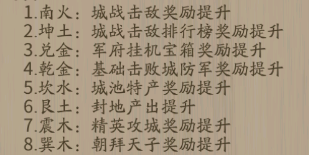 1.南火：城战击敌奖励提升
2.坤土：城战击敌排行榜奖励提升
3.兑金：军府挂机宝箱奖励提升
4.乾金：基础击败城防军奖励提升
5.坎水：城池特产奖励提升
6.艮土：封地产出提升
7.震木：精英攻城奖励提升
8.巽木：朝拜天子奖励提升